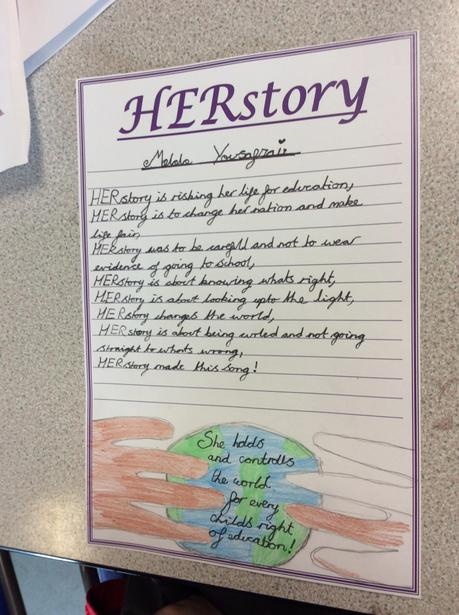 HERstory
Malala Yousafzai
HERstory is risking her life for education,
HERstory is to change her nation and make
life fair,
HERstory was to be carefll and not to wear
evidence of going to school,
HERstory is about knowing whats right,
HERstory is about looking upto the light,
HERstory changes the world,
HERstory is about being and not going
straight to whats wrong,
HERstory made this song!
She holds
and controlls
the world
for every
childs right
of education!